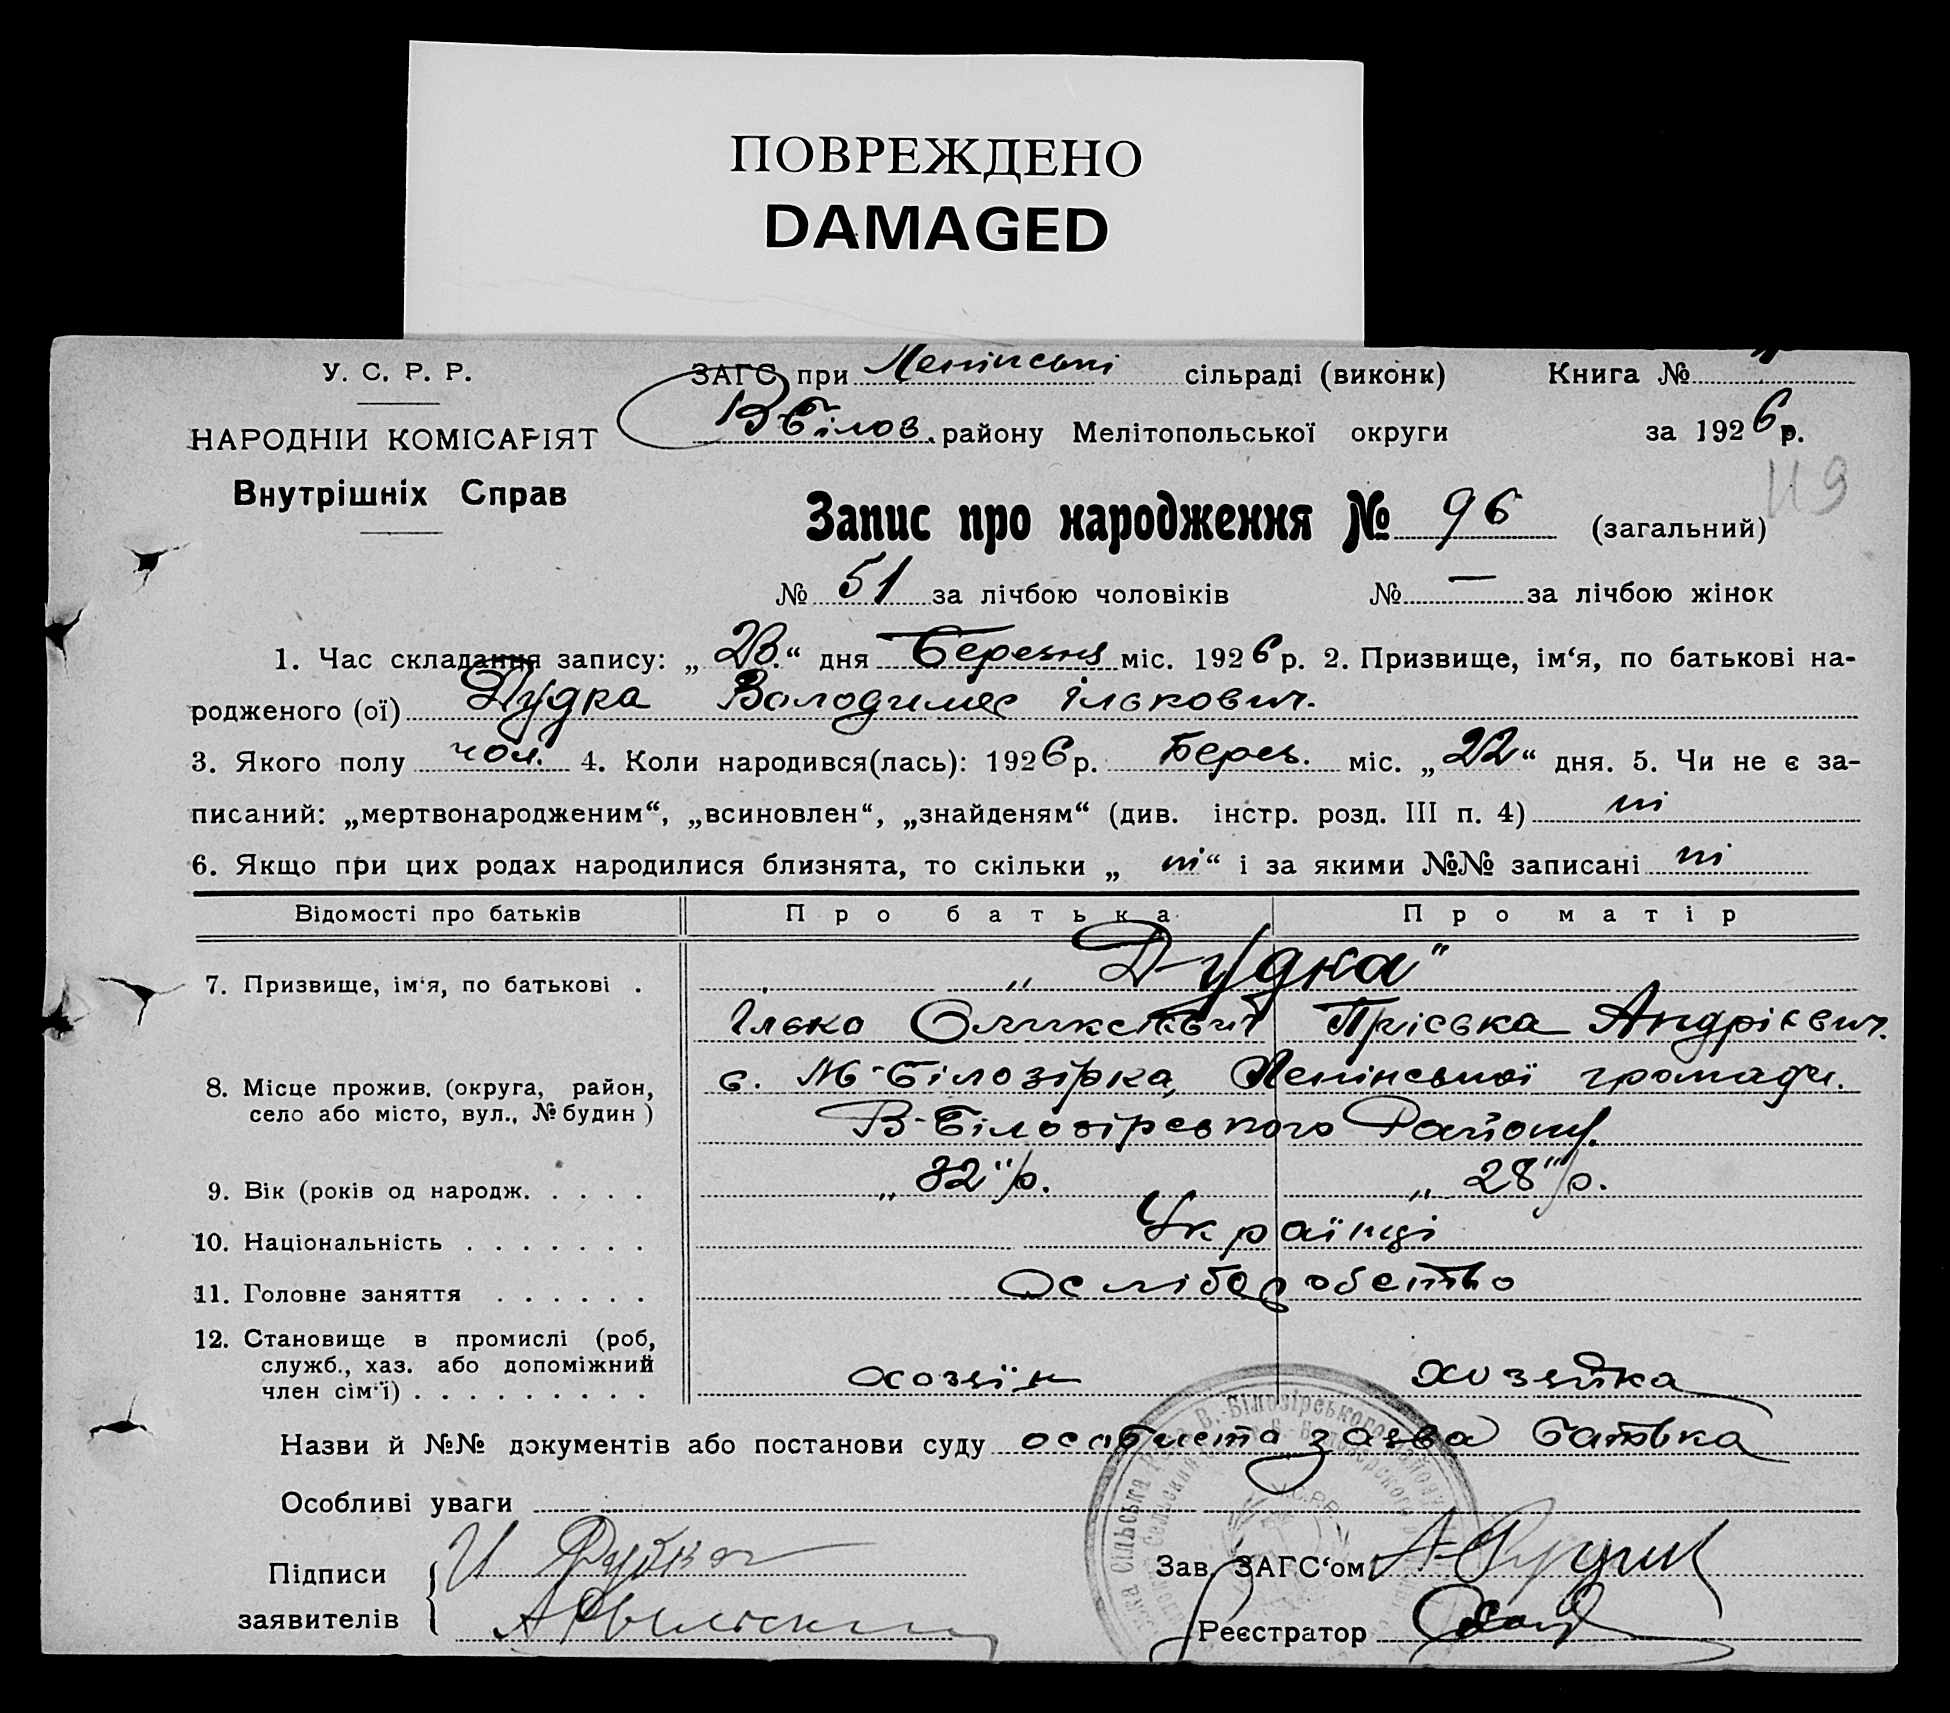 ПОВРЕЖДЕНО
DAMAGED
У. С. Р. Р.
ЗАГС при Ленінські сільраді (виконк) Книга №
НАРОДНІЙ КОМІСАРІЯТ
В Білоз. району Мелітопольської округи за 1926 р.
Внутрішніх Справ
119
Запис про народження № 96 (загальний)
№ 51 за лічбою чоловіків № — за лічбою жінок
1. Час складання запису: „28.“ дня Березня міс. 1926 р. 2. Призвище, ім‘я, по батькові на-
родженого (ої) Дудка Володимер Ількович.
3. Якого полу чол. 4. Коли народився(лась): 1926 р. Берез. міс. „22“ дня. 5. Чи не є за-
писаний: „мертвонародженим“, „всиновлен“, „знайденям“ (див. інстр. розд. III п. 4) ні
6. Якщо при цих родах народилися близнята, то скільки „ ні “ і за якими №№ записані ні
Відомості про батьків Про батька Про матір
7. Призвище, ім‘я, по батькові . „Дудка“
Ілько Приська Андріевич.
8. Місце прожив. (округа, район,
село або місто, вул., № будин )
с. М-Білозірка, Ленінської громади.
В-Білозірського Району.
9. Вік (років од народж. . . . . „32“ р. „28“ р.
10. Національність . . . . . . . Українці
11. Головне заняття . . . . . .
12. Становище в промислі (роб,
служб., хаз. або допоміжний
член сім‘ї) . . . . . . . . . хозяїн хозяйка
Назви й №№ документів або постанови суду особиста заява батька
Особливі уваги
Підписи
заявителів
И Дудка
Зав. ЗАГС‘ом
Реєстратор